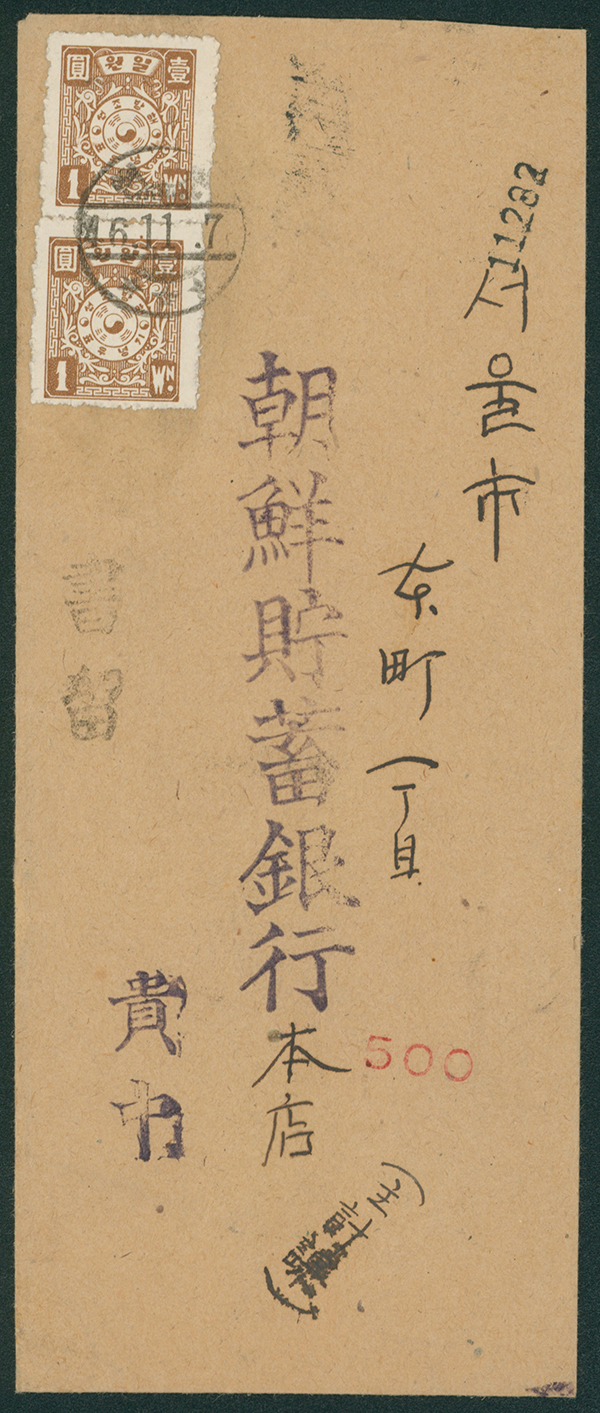 圓 원일 壹
1 WN.
16.11.7
圓 원일 壹
1 WN.
11282
서울市
本町一丁目
朝鮮貯蓄銀行本店
500
書留
貴中